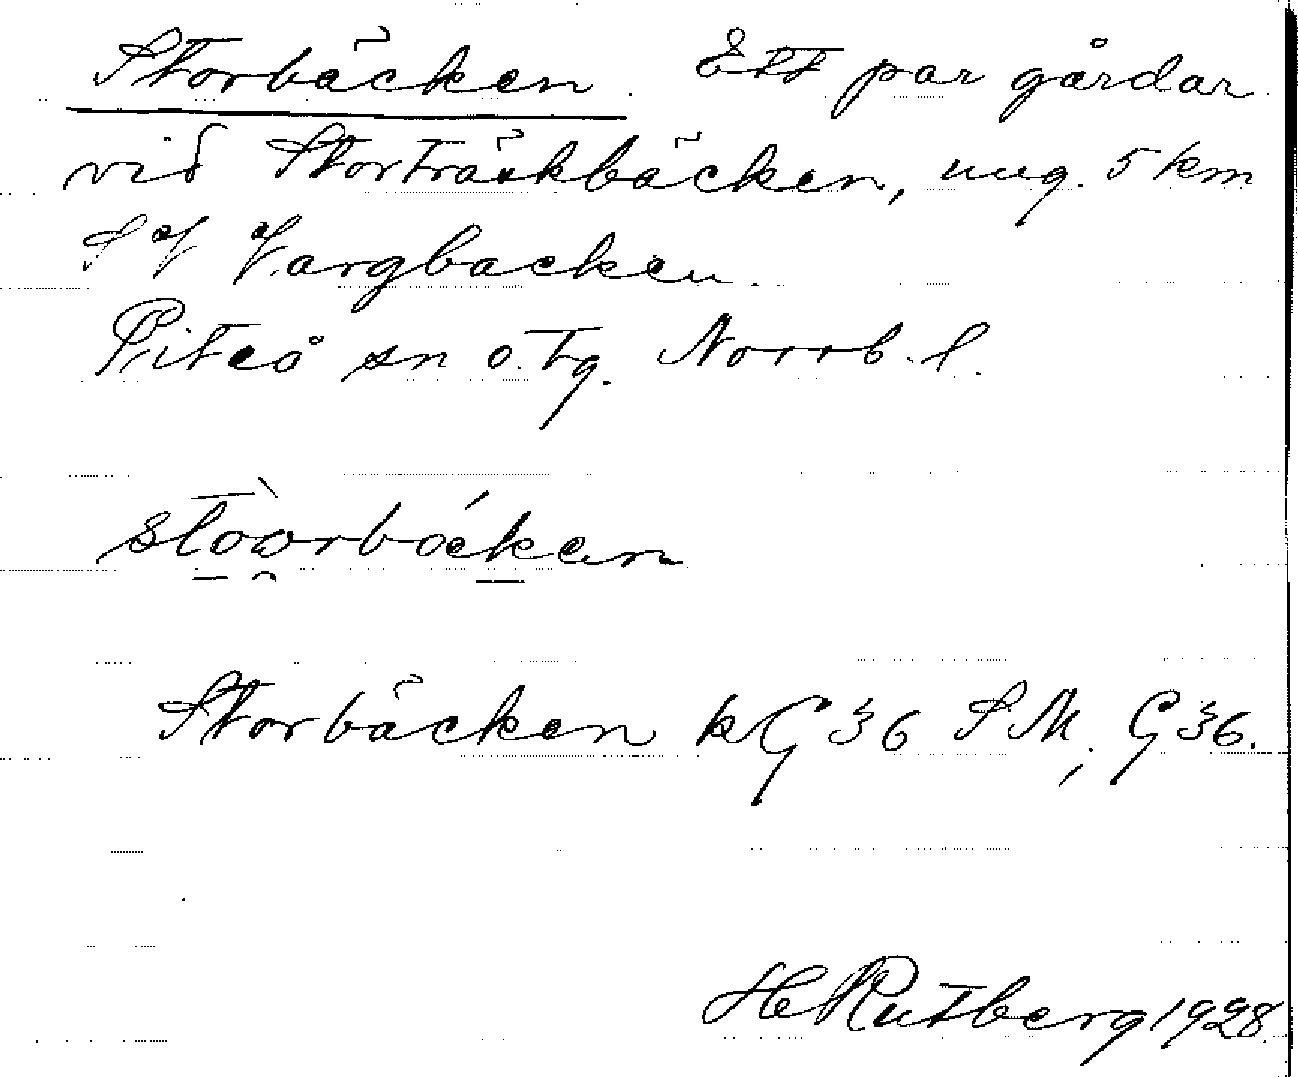 Storbäcken. Ett par gårdar
vid Storträskbäcken, ung. 5 km
S V Vargbacken.
Piteå sn o. tg. Norrb. l.
Storbäcken kG36 SM, G36.
H Rutberg 1928.